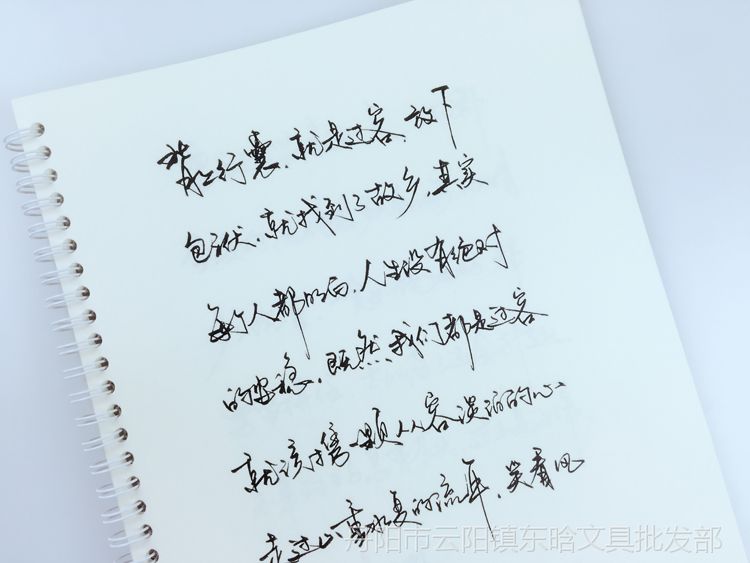 背上行囊，就是过客，放下
包袱，就找到了故乡，其实
每个人都明白，人生没有绝对
的安稳，既然我们都是过客
就该携一颗从容淡泊的心
走过山重水复的流年，笑看风
丹阳市云阳镇东晗文具批发部